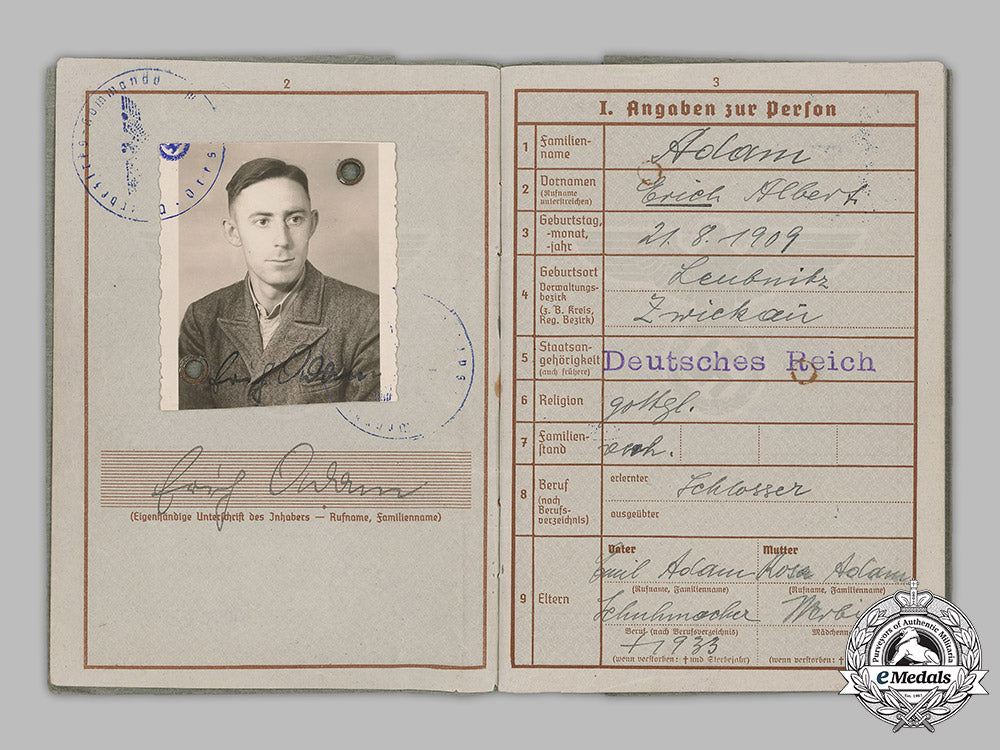 2
Erich Adam
Erich Adam
(Eigenhändige Unterschrift des Inhabers — Rufname, Familienname)
3
I. Angaben zur Person
1 Familien-
name
Adam
2 Vornamen
(Rufname
unterstreichen)
Erich Albert
3 Geburtstag,
-monat,
-jahr
21.8.1909
4 Geburtsort
Verwaltungs-
bezirk
(z. B. Kreis,
Reg. Bezirk)
Leubnitz
Zwickau
5 Staatsan-
gehörigkeit
(auch frühere)
Deutsches Reich
6 Religion
gottgl.
7 Familien-
stand
8 Beruf
(nach
Berufs-
verzeichnis)
erlernter
Schlosser
ausgeübter
9 Eltern
Vater
Emil Adam
(Rufname, Familienname)
Schuhmacher
Beruf (nach Berufsverzeichnis)
† 1933
(wenn verstorben: † und Sterbejahr)
Mutter
Rosa Adam
(Rufname, Familienname)
Mädchenn
(wenn verstorben: †
Purveyors of Authentic Militaria
eMedals